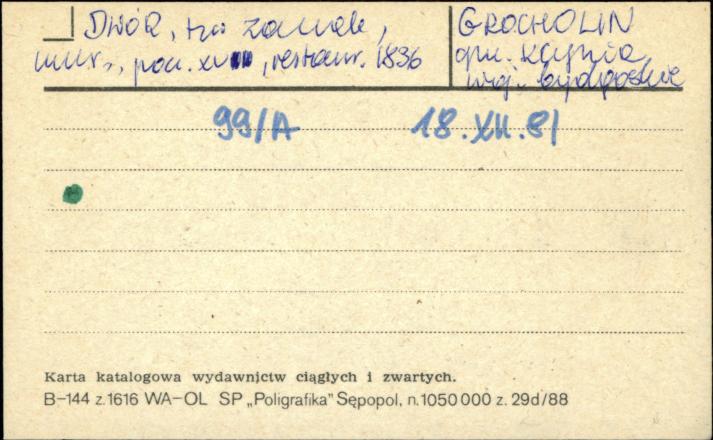 Dwór, tzw zamek,
mur., poł. XVI, restaur. 1836
GROCHOLIN
gm. Kcynia
woj. bydgoskie
99/A 18.XII.81
Karta katalogowa wydawnictw ciągłych i zwartych.
B-144 z.1616 WA-OL SP „Poligrafika” Sępopol, n.1050000 z. 29d/88